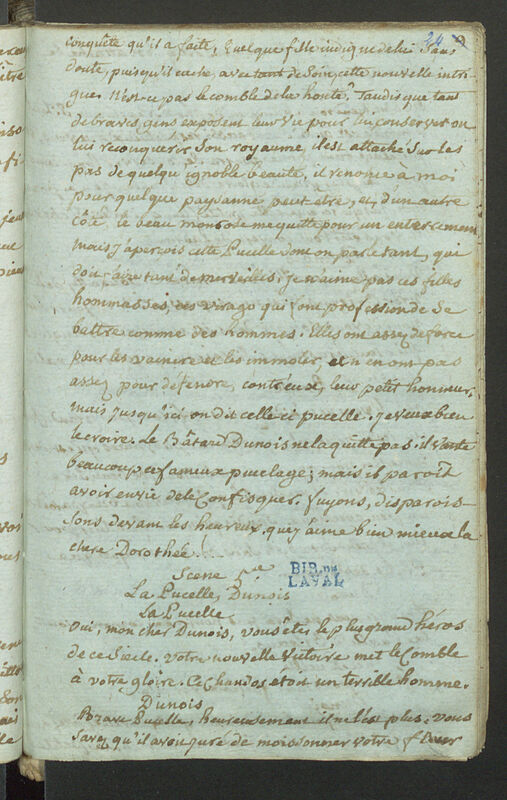 24
conquête qu'il a faite, quelque fille indigne de lui sans
doute, puisqu'il cache, avec tant de soin, cette nouvelle intri
gue. N'est-ce pas le comble de la honte? Tandis que tant
de braves gens exposent leur vie pour lui conserver ou
lui reconquérir son royaume, il est attaché sur les
pas de quelqu'ignoble beauté, il renonce à moi
pour quelque paysanne peut etre; et, d'un autre
côté, le beau monrose me quitte pour un enterrement
mais j'aperçois cette Pucelle dont on parle tant, qui
doit faire tant de merveilles. je n'aime pas ces filles
hommasses, ces virago qui font profession de se
battre comme des hommes. Elles ont assez de force
pour les vaincre et les immoler, et n'en ont pas
assez pour défendre, contr'eux, leur petit honneur,
mais jusqu'ici on dit celle ci pucelle. je veux bien
le croire. le Bâtard Dunois ne la quitte pas. il vante
beaucoup ce fameux pucelage; mais il paroit
avoir envie de le confisquer. fuyons, disparois-
sons devant les heureux. que j'aime bien mieux la
chere Dorothée!
Scene
La Pucelle, Dunois
BIB. DE
LAVAL
La Pucelle
Oui, mon cher Dunois, vous êtes le plus grand héros
de ce Siecle. votre nouvelle victoire met le comble
à votre gloire. Ce Chandos etoit un terrible homme.
Dunois
Brave Pucelle, heureusement il ne l'est plus. vous
savez qu'il avoit juré de moissonner votre fleur